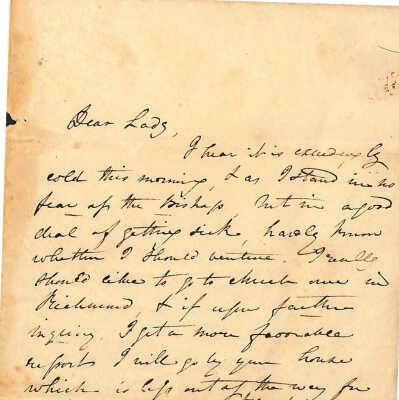 Dear Lady,
I hear it is exceedingly
cold this morning, & as I stand in no
fear of the Bishop but in a good
deal of getting sick, hardly know
whether I should venture. I really
should like to go to church once in
Richmond, & if upon farther
inquiry, I get a more favorable
report I will go by your house
which is less out of the way for